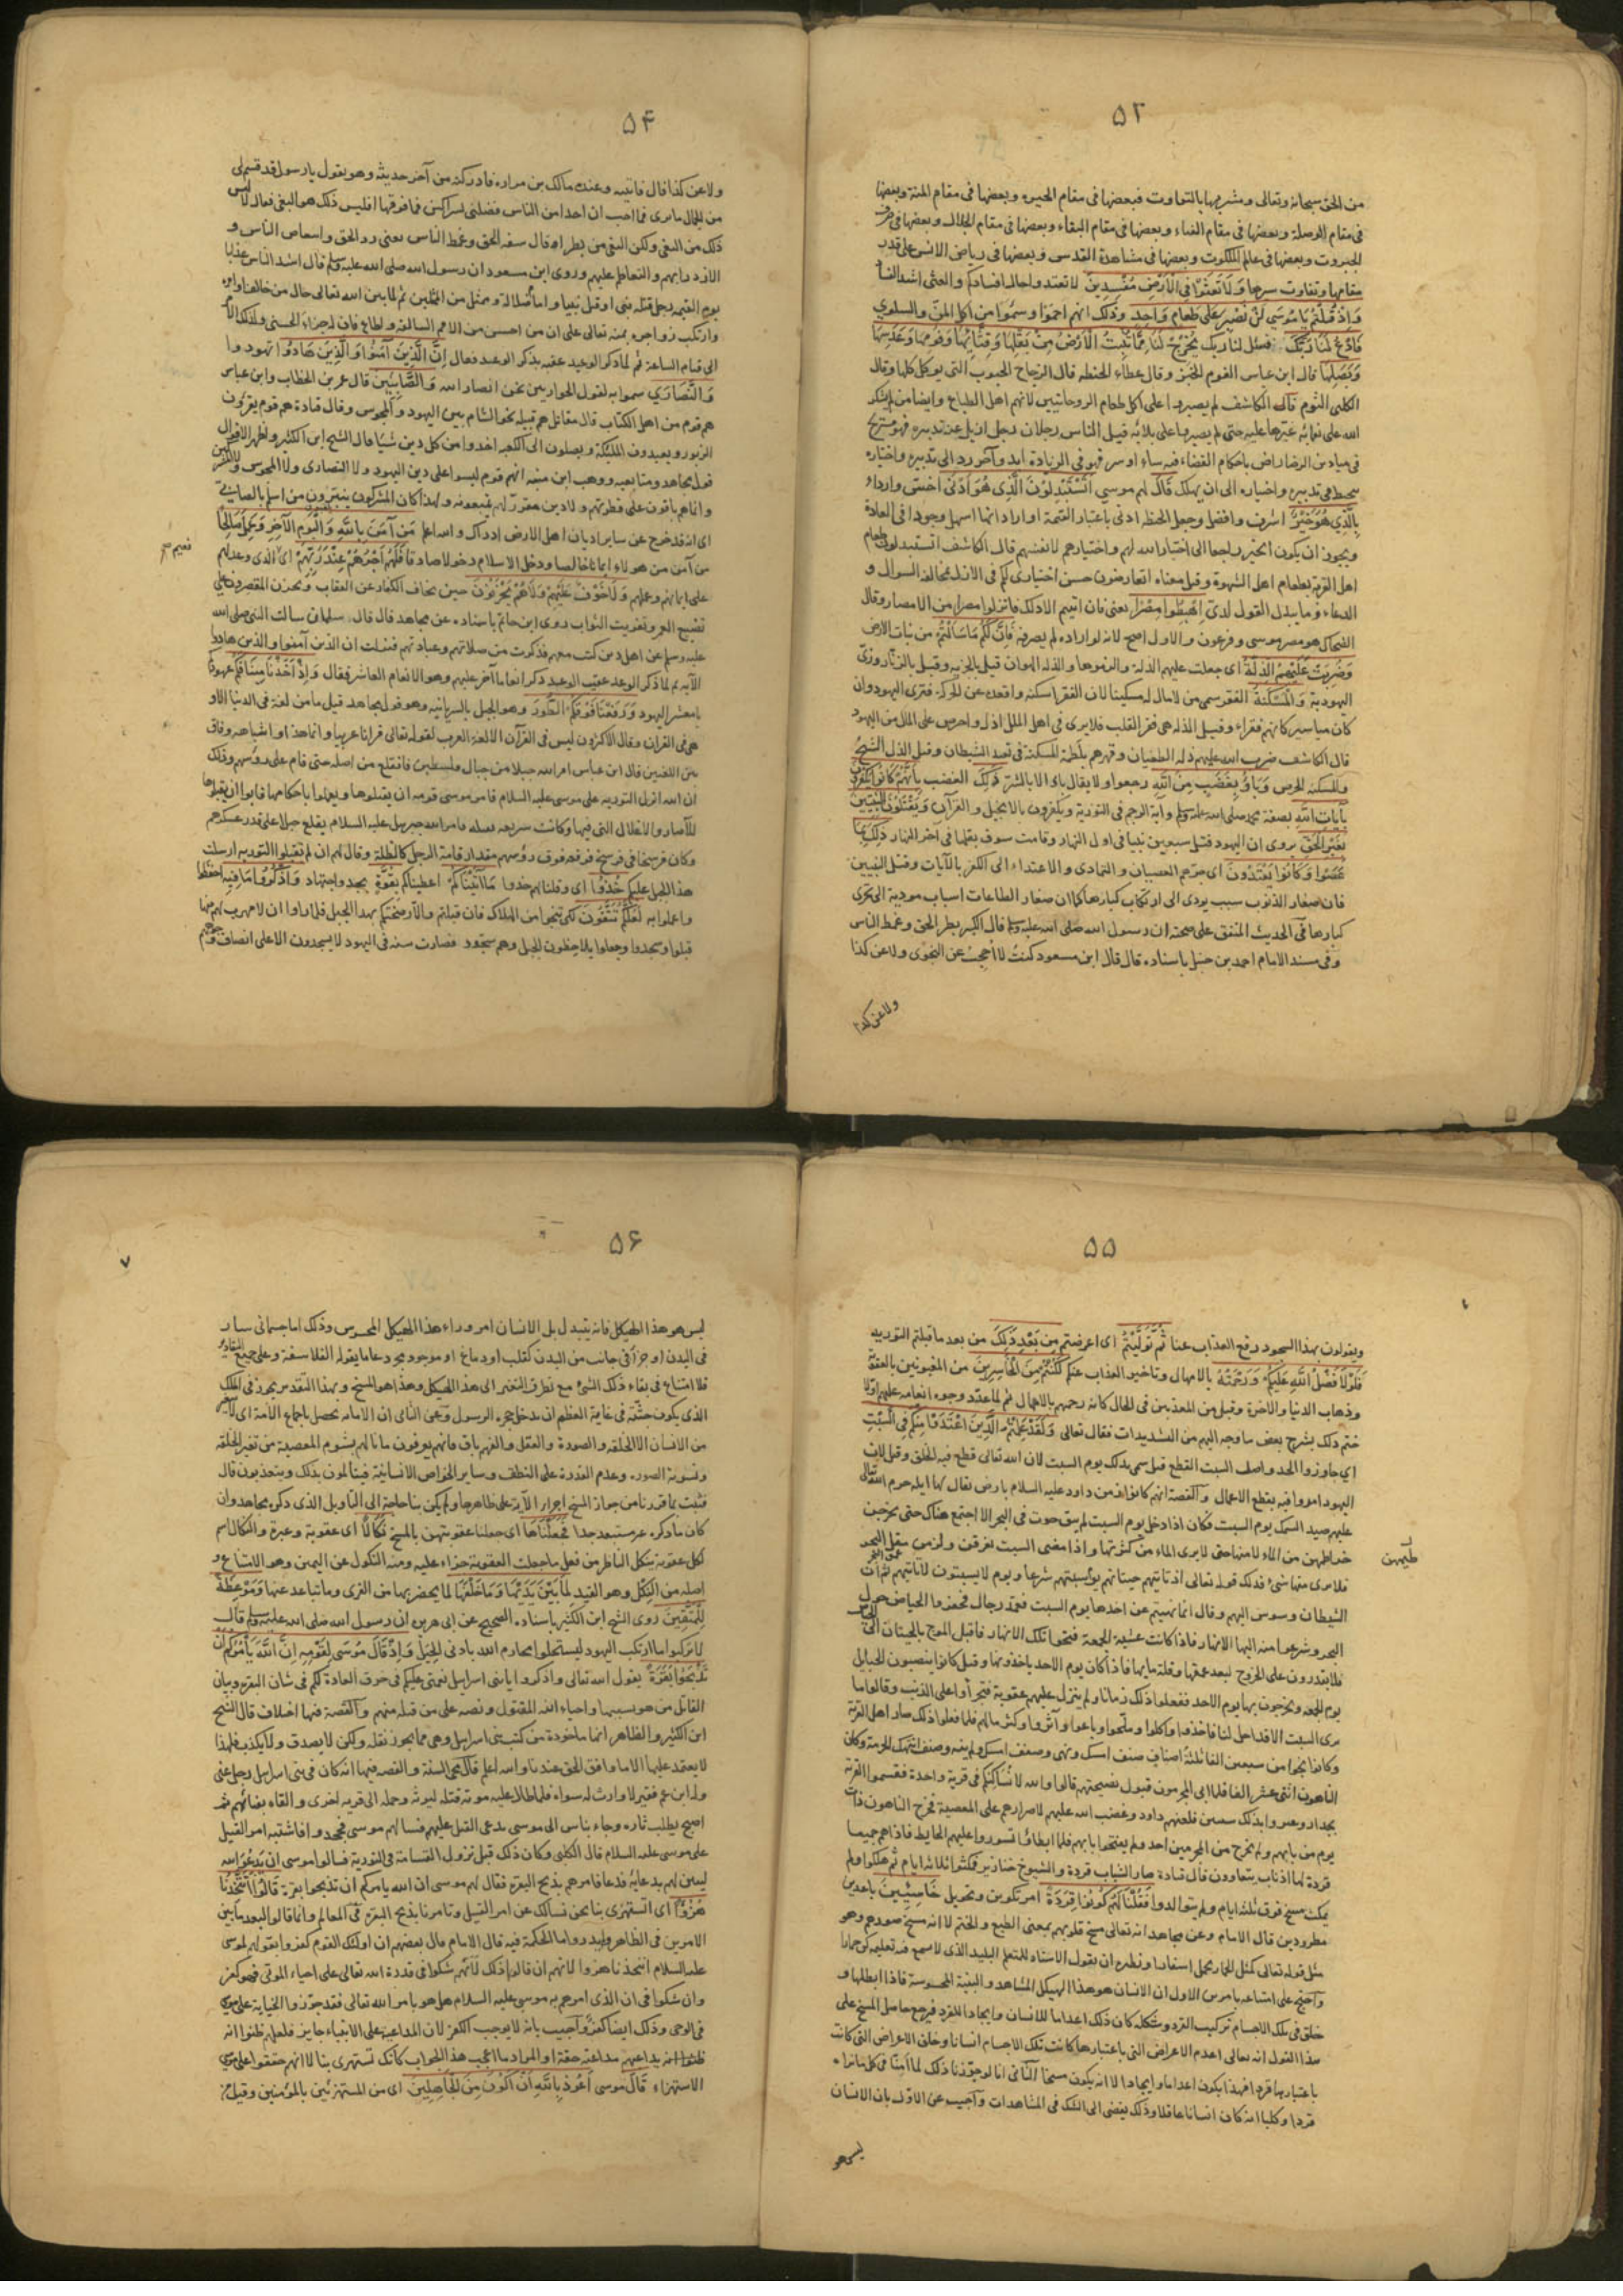 ٥٢
من الحق سبحانه وتعالى ومشربها بالتفاوت فبعضها فى مقام الحيره وبعضها فى مقام المنة وبعضها
فى مقام الوصلة وبعضها فى مقام الفناء وبعضها فى مقام البقاء وبعضها فى مقام الجلال وبعضها فى
الجبروت وبعضها فى عالم الملكوت وبعضها فى مشاهدة القدس وبعضها فى رياض الانس على قدر
مقامها وتفاوت سرها وَلَا تَعْثَوْا فِى الْاَرْضِ مُفْسِدِينَ لا تعتدوا حال افسادكم والعثى اشد الفساد
وَاِذْ قُلْتُمْ يَا مُوسَى لَنْ نَصْبِرَ عَلَى طَعَامٍ وَاحِدٍ وذلك انهم اجموا وسئموا من اكل المن والسلوى
فَادْعُ لَنَا رَبَّكَ فسئل لنا ربك يُخْرِجْ لَنَا مِمَّا تُنْبِتُ الْاَرْضُ مِنْ بَقْلِهَا وَقِثَّائِهَا وَفُومِهَا وَعَدَسِهَا
وَبَصَلِهَا قال ابن عباس الفوم الخبز وقال عطاء الحنطه قال الزجاج الحبوب التى يوكل كلها وقال
الكلبى الثوم قال الكاشف لم يصبروا على اكل طعام الروحانيين لانهم اهل الطباع وايضا من لم يشكر
الله على نعمائه عيرها عليه حتى لم يصبر على بلائه قيل الناس رجلان رجل ازيل عن تدبيره فهو مستريح
فى ميادين الرضا راض باحكام القضاء فيه ساء او سر فهو فى الزيادة ابد وآخر رد الى تدبيره واختياره
فى تدبيره واختياره الى ان يهلك قَالَ لهم موسى اَتَسْتَبْدِلُونَ الَّذِى هُوَ اَدْنَى اخس واردا
بِالَّذِى هُوَ خَيْرٌ اشرف وافضل وجعل الحنطه ادنى باعتبار القيمة او اراد انها اسهل وجودا فى العادة
ويجوز ان يكون الخير راجعا الى اختيار الله لهم واختيارهم لانفسهم قال الكاشف اتستبدلون طعام
اهل القربة بطعام اهل الشهوة وقيل معناه اتعارضون حسن اختيارى لكم فى الازل بمخالفة السوال و
الدعاء وما يبدل القول لدى اِهْبِطُوا مِصْرًا يعنى فان ابيتم الا ذلك فانزلوا مصرا من الامصار وقال
الضحاك هو مصر موسى وفرعون والاول اصح لانه لو اراده لم يصرفه فَاِنَّ لَكُمْ مَا سَاَلْتُمْ من نبات الارض
وَضُرِبَتْ عَلَيْهِمُ الذِّلَّةُ اى جعلت عليهم الذلة والزموها والذله الهوان قيل بالجزيه وقيل بالزنار وزى
اليهودية وَالْمَسْكَنَةُ الفقر سمى من لا مال له مسكينا لان الفقر اسكنه واقعده عن الحركة فترى اليهود وان
كان مياسير كانهم فقراء وقيل الذله هى فقر القلب فلا يرى فى اهل الملل اذل واحرص على المال من اليهود
قال الكاشف ضرب الله عليهم ذله الطغيان وقهرهم بلطمة المسكنة فى تعبد الشيطان وقيل الذل الشح
والمسكنه الحرص وَبَاؤُا بِغَضَبٍ مِنَ اللّٰهِ رجعوا ولا يقال باء الا بالشر ذَلِكَ الغضب بِاَنَّهُمْ كَانُوا يَكْفُرُونَ
بِآيَاتِ اللّٰهِ بصفة محمد صلى الله عليه وسلم وآية الرجم فى التورية ويكفرون بالانجيل والقرآن وَيَقْتُلُونَ النَّبِيِّينَ
بِغَيْرِ الْحَقِّ يروى ان اليهود قتل سبعين نبيا فى اول النهار وقامت سوق بقلها فى آخر النهار ذَلِكَ بِمَا
عَصَوْا وَكَانُوا يَعْتَدُونَ اى جرهم العصيان والتمادى والاعتداء الى الكفر بالآيات وقتل النبيين
فان صغار الذنوب سبب يودى الى ارتكاب كبارها كما ان صغار الطاعات اسباب مودية الى تحرى
كبارها فى الحديث المتفق على صحته ان رسول الله صلى الله عليه وسلم قال الكبر بطر الحق وغمط الناس
وفى مسند الامام احمد بن حنبل باسناده قال قال ابن مسعود كنت لا احجب عن النجوى ولا عن كذا
ولا عن كذا
٥٤
ولا عن كذا قال فاتيته وعنده مالك بن مراره فادركته من آخر حديثه وهو يقول يا رسول قد قسم لى
من الجمال ما ترى فما احب ان احدا من الناس فضلنى بشراكين فما فوقها افليس ذلك هو البغى فقال لا ليس
ذلك من البغى ولكن البغى من بطر او قال سفه الحق وغمط الناس يعنى رد الحق وانتقاص الناس و
الازدراء بهم والتعاظم عليهم وروى ابن مسعود ان رسول الله صلى الله عليه وسلم قال اشد الناس عذابا
يوم القيمة رجل قتله نبى او قتل نبيا وامام ضلالة وممثل من الممثلين ثم لما بين الله تعالى حال من خالف اوامره
وارتكب زواجره بمنه تعالى على ان من احسن من الامم السالفة واطاع فان له جزاء الحسنى ولذلك الامر
الى قيام الساعة ثم لما ذكر الوعيد عقبه بذكر الوعد فقال اِنَّ الَّذِينَ آمَنُوا وَالَّذِينَ هَادُوا تهودوا
وَالنَّصَارَى سموا به لقول الحواريين نحن انصار الله وَالصَّابِئِينَ قال عمر بن الخطاب وابن عباس
هم قوم من اهل الكتاب قال مقاتل هم قبيله نحو الشام بين اليهود والمجوس وقال قتادة هم قوم يقرؤن
الزبور ويعبدون الملئكة ويصلون الى الكعبه اخذوا من كل دين شيئا قال الشيخ ابن الكثير واظهر الاقوال
قول مجاهد ومتابعيه ووهب ابن منبه انهم قوم ليسوا على دين اليهود ولا النصارى ولا المجوس ولا المشركين
وانما هم باقون على فطرتهم ولا دين مقرر لهم يتبعونه ولهذا كان المشركون ينبزون من اسلم بالصابى
اى انه قد خرج عن ساير اديان اهل الارض اذ ذاك والله اعلم مَنْ آمَنَ بِاللّٰهِ وَالْيَوْمِ الْآخِرِ وَعَمِلَ صَالِحًا
من آمن من هولاء ايمانا خالصا ودخل الاسلام دخولا صادقا فَلَهُمْ اَجْرُهُمْ عِنْدَ رَبِّهِمْ اى الذى وعد لهم
على ايمانهم وعملهم وَلَا خَوْفٌ عَلَيْهِمْ وَلَا هُمْ يَحْزَنُونَ حين يخاف الكفار عن العقاب ويحزن المقصرون على
تضييع العمر وتفويت الثواب روى ابن حاتم باسناده عن مجاهد قال قال سلمان سالت النبى صلى الله
عليه وسلم عن اهل دين كنت معهم فذكرت من صلاتهم وعبادتهم فنزلت ان الذين آمنوا والذين هادوا
الآيه ثم لما ذكر الوعد عقيب الوعيد ذكر انعاما آخر عليهم وهو الانعام العاشر فقال وَاِذْ اَخَذْنَا مِيثَاقَكُمْ عهودكم
يا معشر اليهود وَرَفَعْنَا فَوْقَكُمُ الطُّورَ وهو الجبل بالسريانيه وهو قول مجاهد قيل ما من لغة فى الدنيا الا و
هى فى القرآن وقال الاكثرون ليس فى القرآن الا لغة العرب لقوله تعالى قرآنا عربيا وانما هذا واشباهه وفاق
بين اللغتين قال ابن عباس امر الله جبلا من جبال فلسطين فانقلع من اصله حتى قام على رؤسهم وذلك
ان الله انزل التوريه على موسى عليه السلام فامر موسى قومه ان يقبلوها ويعملوا باحكامها فابوا ان يقبلوها
للآصار والاثقال التى فيها وكانت شريعه ثقيله فامر الله جبرييل عليه السلام يقلع جبلا على قدر عسكرهم
وكان فرسخا فى فرسخ فرفعه فوق رؤسهم مقدار قامة الرجل كالظلة وقال لهم ان لم تقبلوا التوريه ارسلت
هذا الجبل عليكم خُذُوا اى وقلنا لهم خذوا مَا آتَيْنَاكُمْ اعطيناكم بِقُوَّةٍ بجد واجتهاد وَاذْكُرُوا مَا فِيهِ احفظوا
واعملوا به لَعَلَّكُمْ تَتَّقُونَ لكى تنجوا من الهلاك فان قبلتم والا رضختكم بهذا الجبل فلما راوا ان لا مهرب لهم منها
قبلوا وسجدوا وجعلوا يلاحظون الجبل وهم سجود فصارت سنة فى اليهود لا يسجدون الا على انصاف وجوههم
٥٥
ويقولون بهذا السجود رفع العذاب عنا ثُمَّ تَوَلَّيْتُمْ اى اعرضتم مِنْ بَعْدِ ذَلِكَ من بعد ما قبلتم التوريه
فَلَوْلَا فَضْلُ اللّٰهِ عَلَيْكُمْ وَرَحْمَتُهُ بالامهال وتاخير العذاب عنكم لَكُنْتُمْ مِنَ الْخَاسِرِينَ من المغبونين بالعقوبة
وذهاب الدنيا والآخرة وقيل من المعذبين فى الحال كانه رحمهم بالامهال ثم لما عدد وجوه انعامه عليهم اولا
ختم ذلك بشرح بعض ما وجه اليهم من التشديدات فقال تعالى وَلَقَدْ عَلِمْتُمُ الَّذِينَ اعْتَدَوْا مِنْكُمْ فِى السَّبْتِ
اى جاوزوا الحد واصل السبت القطع قيل سمى بذلك يوم السبت لان الله تعالى قطع فيه الخلق وقيل لان
اليهود امروا فيه بقطع الاعمال والقصة انهم كانوا فى زمن داود عليه السلام بارض يقال لها ايله حرم الله تعالى
عليهم صيد السمك يوم السبت فكان اذا دخل يوم السبت لم يبق حوت فى البحر الا اجتمع هناك حتى يخرجن
خراطيمهن من الماء لامنها حتى لا يرى الماء من كثرتها واذا مضى السبت تفرقن ولزمن مقل البحر
فلا يرى منها شئ فذلك قوله تعالى اذ تاتيهم حيتانهم يوم سبتهم شرعا ويوم لا يسبتون لا تاتيهم ثم ان
الشيطان وسوس اليهم وقال انما نهيتم عن اخذها يوم السبت فعمد رجال فحفروا الحياض حول
البحر وشرعوا منه اليها الانهار فاذا كانت عشية الجمعة فتحوا تلك الانهار فاقبل الموج بالحيتان الى
فلا يقدرون على الخروج لبعد عمقها وقلة مايها فاذا كان يوم الاحد ياخذونها وقيل كانوا ينصبون الحبائل
يوم الجمعه ويخرجون بها يوم الاحد ففعلوا ذلك زمانا ولم ينزل عليهم عقوبة فتجرأوا على الذنب وقالوا ما
نرى السبت الا قد احل لنا فاخذوا واكلوا وملحوا وباعوا واثروا وكثر مالهم فلما فعلوا ذلك صار اهل القرية
وكانوا نحوا من سبعين الفا ثلثة اصناف صنف امسك ونهى وصنف امسك ولم ينه وصنف انتهك الحرمة وكان
الناهون اثنى عشر الفا فلما ابى المجرمون قبول نصيحتهم قالوا والله لا نساكنكم فى قرية واحدة فقسموا القرية
بجدار وعبروا بذلك سنتين فلعنهم داود وغضب الله عليهم لاصرارهم على المعصية فخرج الناهون ذات
يوم من بابهم ولم يخرج من المجرمين احد ولم يفتحوا بابهم فلما ابطاؤا تسوروا عليهم الحايط فاذا هم جميعا
قردة لها اذناب يتعاوون قال قتادة صار الشباب قردة والشيوخ خنازير فمكثوا ثلاثة ايام ثم هلكوا ولم
يمكث مسخ فوق ثلثة ايام ولم يتوالدوا فَقُلْنَا لَهُمْ كُونُوا قِرَدَةً امر تكوين وتحويل خَاسِئِينَ باعدين
مطرودين قال الامام وعن مجاهد انه تعالى مسخ قلوبهم بمعنى الطبع والختم لا انه مسخ صورهم وهو
مثل قوله تعالى كمثل الحمار يحمل اسفارا ونظيره ان يقول الاستاد للمتعلم البليد الذى لا ينجع فيه تعليمه كن حمارا
واحتج على امتناعه بامرين الاول ان الانسان هو هذا الهيكل المشاهد والبنية المحسوسة فاذا ابطلها و
خلق فى تلك الاجسام تركيب القرد وشكله كان ذلك اعداما للانسان وايجادا للقرد فيرجع حاصل المسخ على
هذا القول انه تعالى اعدم الاعراض التى باعتبارها كانت تلك الاجسام انسانا وخلق الاعراض التى كانت
باعتبارها قردا فهذا يكون اعداما وايجادا لا انه يكون مسخا الثانى انا لو جوزنا ذلك لما آمنا فى كل ما نراه
قردا وكلبا انه كان انسانا عاقلا وذلك يفضى الى الشك فى المشاهدات واجيب عن الاول بان الانسان
ليس هو
٥٦
ليس هو هذا الهيكل فانه يتبدل بل الانسان امر وراء هذا الهيكل المحسوس وذلك اما جسمانى سار
فى البدن او جزأ فى جانب من البدن كقلب او دماغ او موجود مجرد عاما يقوله الفلاسفة وعلى جميع التقادير
فلا امتناع فى بقاء ذلك الشئ مع تطرق التغير الى هذا الهيكل وهذا هو المسخ وبهذا التقدير يجوز فى الملك
الذى يكون جثته فى غاية العظم ان يدخل حجره الرسول وعن الثانى ان الامانه يحصل باجماع الامة اى لا يتغير
من الانسان الا الخلقه والصورة والعقل والفهم باق فانهم يعرفون ما نالهم بشوم المعصية من تغير الخلقه
وتسويه الصوره وعدم القدرة على النطق وساير الخواص الانسانية فيتالمون بذلك ويتعذبون قال
فثبت بما قررنا من جواز المسخ اجراء الآية على ظاهرها ولم يكن بنا حاجة الى التاويل الذى ذكره مجاهد وان
كان ما ذكره غير مستبعد جدا فَجَعَلْنَاهَا اى جعلنا عقوبتهن بالمسخ نَكَالًا اى عقوبة وعبرة والنكال اسم
لكل عقوبة ينكل الناظر من فعل ما جعلت العقوبة جزاء عليه ومنه النكول عن اليمين وهو الامتناع و
اصله من النكل وهو القيد لِمَا بَيْنَ يَدَيْهَا وَمَا خَلْفَهَا لما يحضر بها من القرى وما تباعد عنها وَمَوْعِظَةً
لِلْمُتَّقِينَ روى الشيخ ابن الكثير باسناده الصحيح عن ابى هريره ان رسول الله صلى الله عليه وسلم قال
لا تركبوا ما ارتكب اليهود ليستحلوا محارم الله بادنى الحيل وَاِذْ قَالَ مُوسَى لِقَوْمِهِ اِنَّ اللّٰهَ يَأْمُرُكُمْ اَنْ
تَذْبَحُوا بَقَرَةً يقول الله تعالى واذكروا يا بنى اسرايل نعمتى عليكم فى خرق العادة لكم فى شان البقره وبيان
القاتل من هو بسببها واحياء الله المقتول ونصه على من قتله منهم والقصة فيها اختلاف قال الشيخ
ابن الكثير والظاهر انها ماخوذة من كتب بنى اسرايل وهى مما يجوز نقله ولكن لا يصدق ولا يكذب فلهذا
لا يعتمد عليها الا ما وافق الحق عندنا والله اعلم قال محى السنة والقصه فيها انه كان فى بنى اسرايل رجل غنى
وله ابن عم فقير لا وارث له سواه فلما طال عليه موته قتله ليرثه وحمله الى قريه اخرى والقاه بفنائهم ثم
اصبح يطلب ثاره وجاء بناس الى موسى يدعى القتل عليهم فسالهم موسى فجحدوا فاشتبه امر القتيل
على موسى عليه السلام قال الكلبى وكان ذلك قبل نزول القسامة فى التوريه فسالوا موسى ان يدعو الله
ليبين لهم بدعائه فدعا فامرهم بذبح البقره فقال لهم موسى ان الله يامركم ان تذبحوا بقرة قَالُوا اَتَتَّخِذُنَا
هُزُوًا اى اتستهزئ بنا نحن نسالك عن امر القتيل وتامرنا بذبح البقره فى المعالم وانما قالوا لبعد ما بين
الامرين فى الظاهر ولم يدروا ما الحكمة فيه قال الامام قال بعضهم ان اولئك القوم كفروا بقولهم لموسى
عليه السلام اتتخذنا هزوا لانهم ان قالوا ذلك لانهم شكوا فى قدرة الله تعالى على احياء الموتى فهو كفر
وان شكوا فى ان الذى امرهم به موسى عليه السلام هل هو بامر الله تعالى فقد جوزوا الخيانة على موسى
فى الوحى وذلك ايضا كفر واجيب بانه لا يوجب الكفر لان المداعبة على الانبياء جايز فلعلهم ظنوا انه
يداعبهم مداعبة حقة او المراد ما اعجب هذا الجواب كانك تستهزئ بنا لا انهم حققوا على موسى
الاستهزاء قَالَ موسى اَعُوذُ بِاللّٰهِ اَنْ اَكُونَ مِنَ الْجَاهِلِينَ اى من المستهزئين بالمؤمنين وقيل من